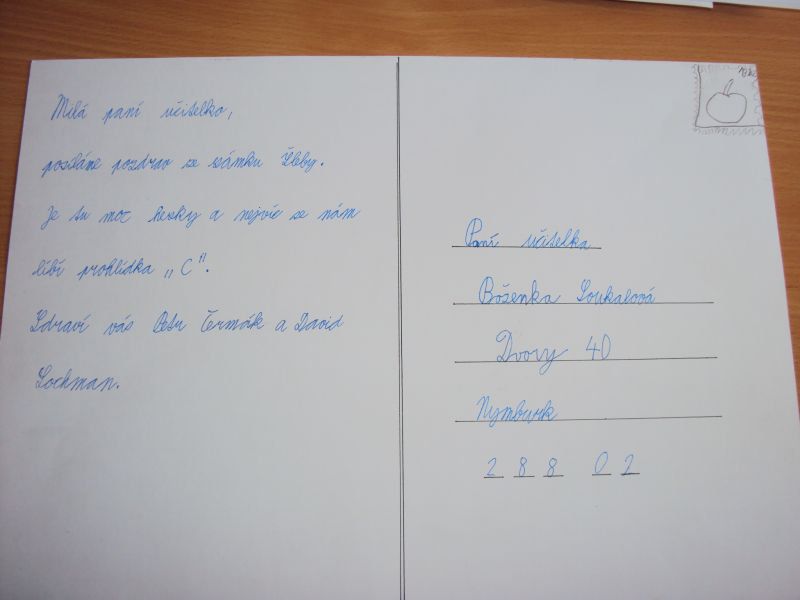 Milá paní učitelko,
posíláme pozdrav ze zámku Žleby.
Je tu moc hezky a nejvíc se nám
líbí prohlídka „C“.
Zdraví vás Petr Čermák a David
Lochman.
Paní učitelka
Boženka Soukalová
Dvory 40
Nymburk
288 02